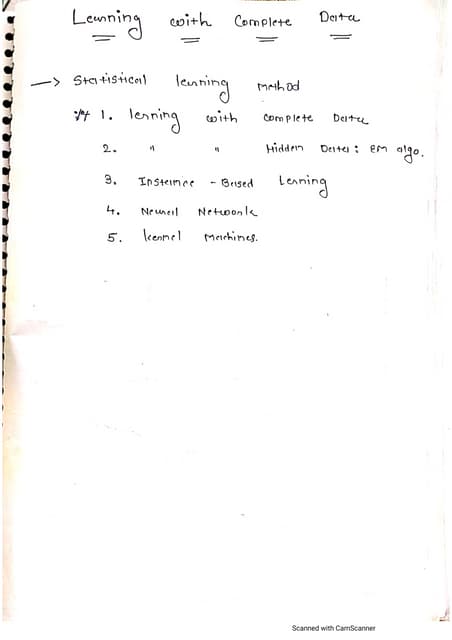 Learning with Complete Data
→ Statistical learning method
** 1. lerning with complete Data
2. " " Hidden Data : EM algo.
3. Instance - Based Lerning
4. Neural Network
5. kernel Machines.
Scanned with CamScanner